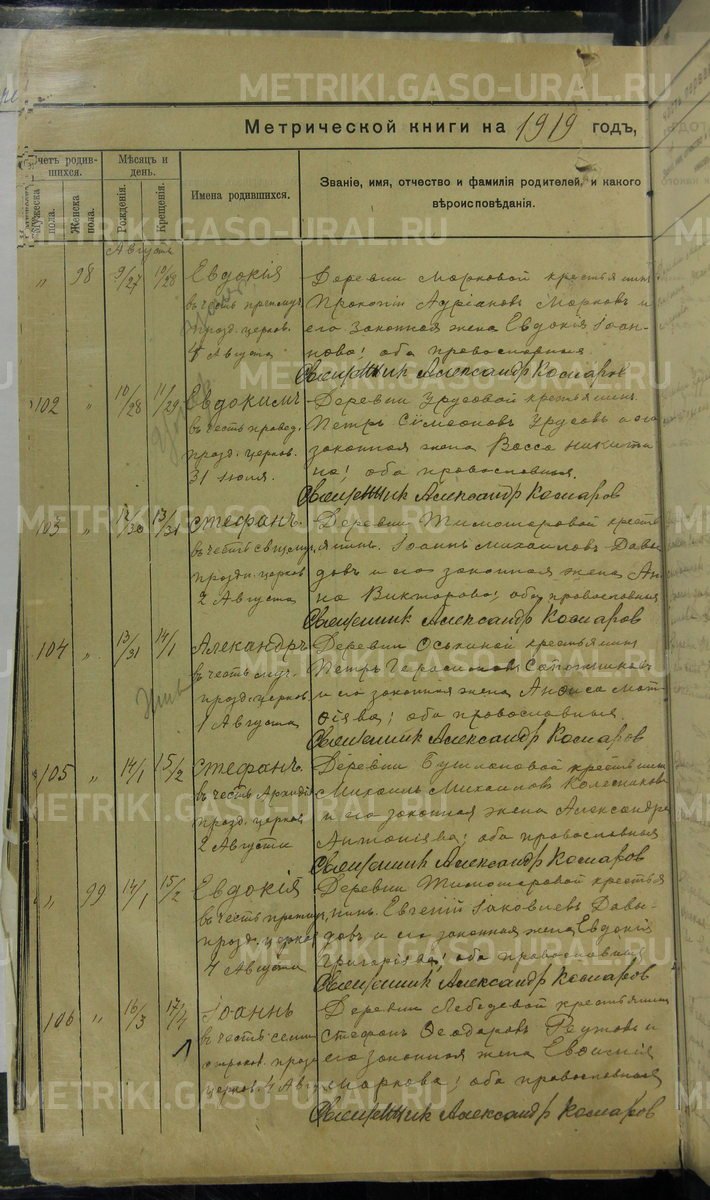 METRIKI.GASO-URAL.RU
Метрической книги на 1919 годъ,
Счетъ родив-
шихся.
Мужеска
пола.
Женска
пола.
Мѣсяцъ и
день.
Рожденія.
Крещенія.
Имена родившихся.
Званіе, имя, отчество и фамилія родителей, и какого
вѣроисповѣданія.
Августъ
" 98 9/27 10/28 Евдокія
въ честь препмуч
празд. церков.
4 Августа
Деревни Морковой крестьянин
Прокопій Адріановъ Морковъ и
его законная жена Евдокія Іоан-
нова; оба православныя
Священник Александр Комаров
102 " 10/28 11/29 Евдокимъ
въ честь правед.
празд. церков.
31 Іюля.
Деревни Урусовой крестьянин.
Петръ Сѵмеоновъ Урусовъ и его
законная жена Васса Никити
на; оба православныя.
Священник Александр Комаров
103 " 12/30 13/31 Стефанъ.
въ честь свщмуч.
праздн. церков
2 Августа
Деревни Тимошаровой кресть
янин. Іоаннъ Михаиловъ Давы
довъ и его законная жена Ан
на Викторова; оба православныя
Священник Александр Комаров
104 " 13/31 14/1 Алекандръ
въ честь муч.
празд. церков
1 Августа
Деревни Оськиной крестьянин
Петръ Герасимовъ Сапожниковъ
и его законная жена Анфиса Мат
ѳіева; оба православныя.
Священник Александр Комаров
105 " 14/1 15/2 Стефанъ.
въ честь Архиді
празд. церков
2 Августа
Деревни крестьянин
Михаилъ Михаиловъ Колесников
и его законная жена Александра
Антоніева; оба православныя
Священник Александр Комаров
" 99 14/1 15/2 Евдокія
въ честь препмуч.
празд. церков
4 Августа
Деревни Тимошаровой крестья
нинъ. Евгеній Іаковлевъ Давы
довъ и его законная жена Евдокія
Григоріева; оба православныя
Священник Александр Комаров
106 " 16/3 17/4 Іоаннъ
въ честь семи
отроков. празд
церков. 4 Авг
Деревни Лебедевой крестьянин
Стефанъ Ѳеодоровъ и
его законная жена Евѳимія
Маркова; оба православныя
Священник Александр Комаров